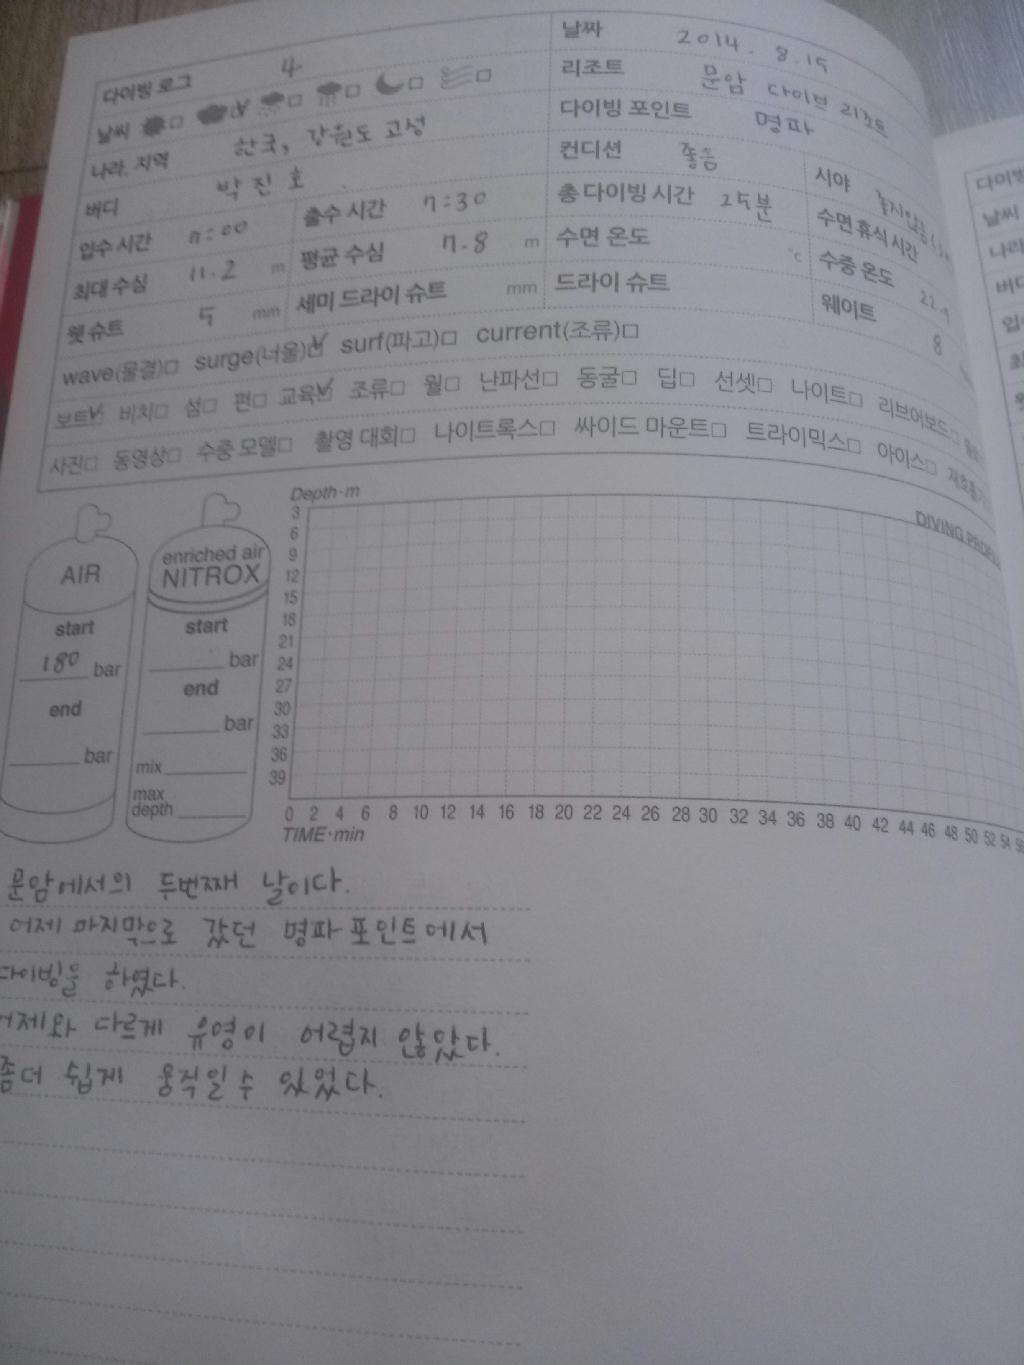 다이빙 로그 4 날짜 2014. 8. 15
날씨 리조트 문암 다이브 리조트
나라, 지역 한국, 강원도 고성 다이빙 포인트 명파
버디 박진호 컨디션 좋음 시야 좋지않음
입수 시간 7:00 출수 시간 7:30 총 다이빙 시간 25분 수면 휴식 시간
최대 수심 11.2 m 평균 수심 7.8 m 수면 온도 °C 수중 온도 22.
웻 슈트 5 mm 세미 드라이 슈트 mm 드라이 슈트 웨이트 8
wave(물결) surge(너울) surf(파고) current(조류)
보트 비치 섬 펀 교육 조류 월 난파선 동굴 딥 선셋 나이트 리브어보드
사진 동영상 수중 모델 촬영 대회 나이트록스 싸이드 마운트 트라이믹스 아이스
Depth·m
DIVING
AIR
start
180 bar
end
bar
enriched air
NITROX
start
bar
end
bar
mix
max
depth
3
6
9
12
15
18
21
24
27
30
33
36
39
0 2 4 6 8 10 12 14 16 18 20 22 24 26 28 30 32 34 36 38 40 42 44 46 48 50 52 54
TIME·min
문암에서의 두번째 날이다.
어제 마지막으로 갔던 명파 포인트에서
다이빙을 하였다.
어제와 다르게 유영이 어렵지 않았다.
좀더 쉽게 움직일 수 있었다.
다이빙
날씨
나라
버디